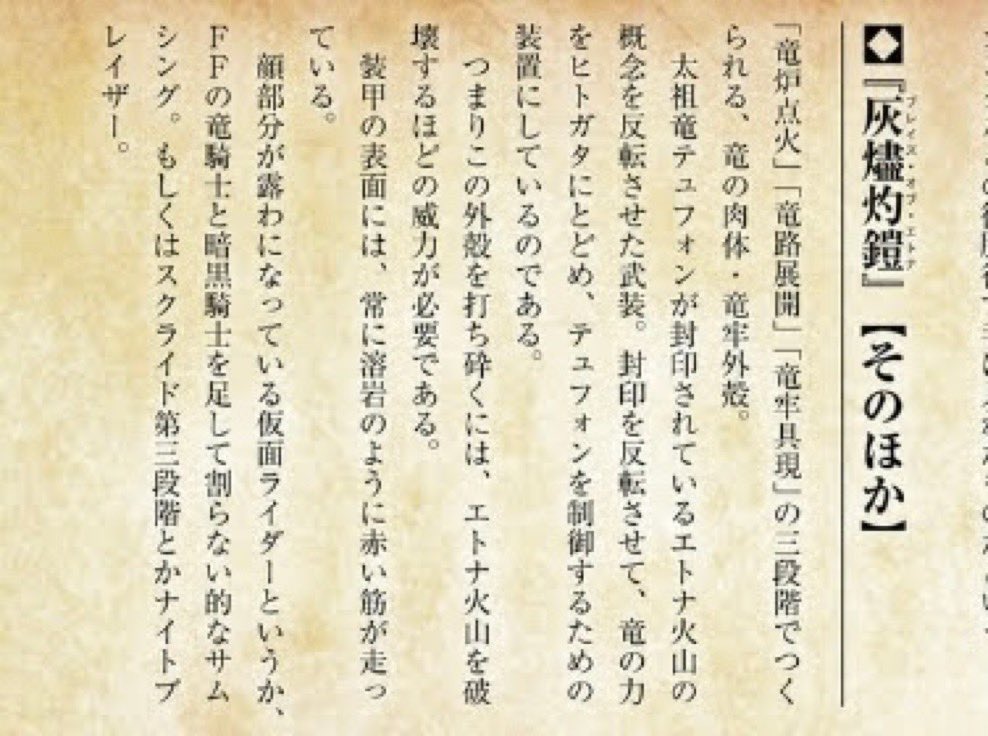 ◆『灰燼灼鎧』【そのほか】
「竜炉点火」「竜路展開」「竜牢具現」の三段階でつく
られる、竜の肉体・竜牢外殻。
　太祖竜テュフォンが封印されているエトナ火山の
概念を反転させた武装。封印を反転させて、竜の力
をヒトガタにとどめ、テュフォンを制御するための
装置にしているのである。
　つまりこの外殻を打ち砕くには、エトナ火山を破
壊するほどの威力が必要である。
　装甲の表面には、常に溶岩のように赤い筋が走っ
ている。
　顔部分が露わになっている仮面ライダーというか、
ＦＦの竜騎士と暗黒騎士を足して割らない的なサム
シング。もしくはスクライド第三段階とかナイトブ
レイザー。